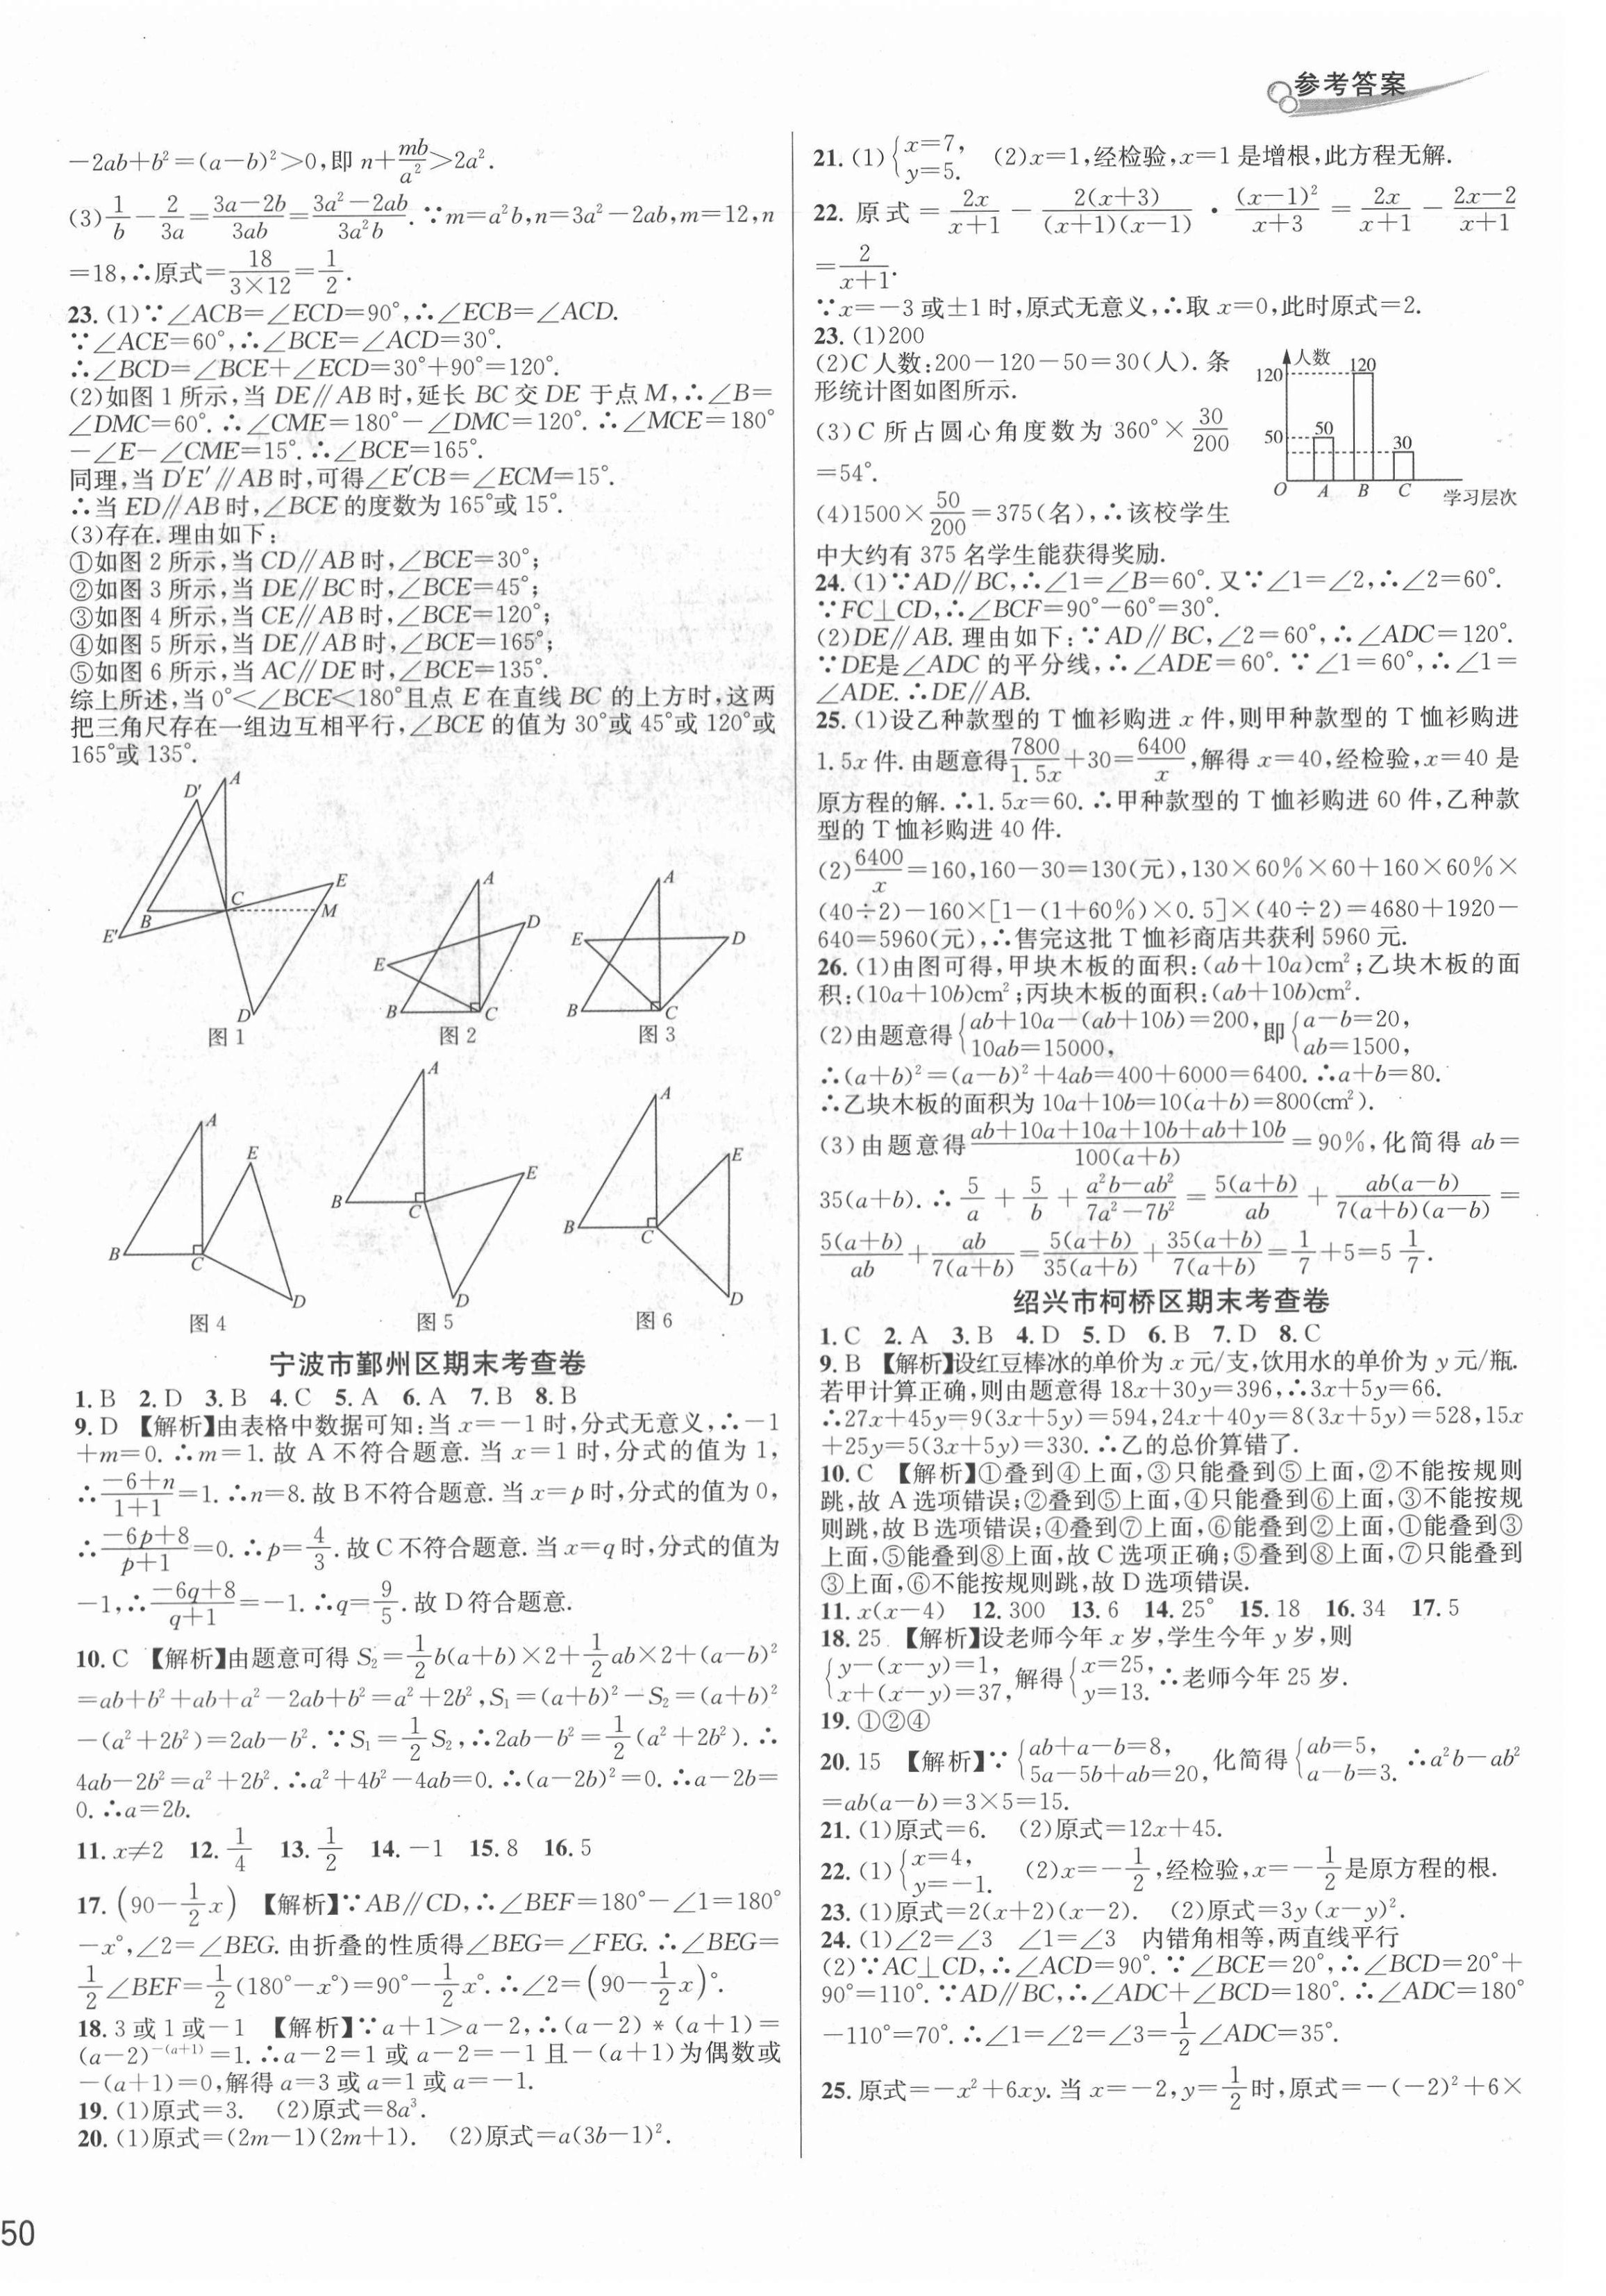 参考答案
-2ab+b²=(a-b)²>0,即 n+mb/a²>2a².
(3)1/b-2/3a=(3a-2b)/3ab=(3a²-2ab)/3a²b.∵m=a²b,n=3a²-2ab,m=12,n
=18,∴原式=18/(3×12)=1/2.
23.(1)∵∠ACB=∠ECD=90°,∴∠ECB=∠ACD.
∵∠ACE=60°,∴∠BCE=∠ACD=30°.
∴∠BCD=∠BCE+∠ECD=30°+90°=120°.
(2)如图 1 所示,当 DE∥AB 时,延长 BC 交 DE 于点 M,∴∠B=
∠DMC=60°.∴∠CME=180°-∠DMC=120°.∴∠MCE=180°
-∠E-∠CME=15°.∴∠BCE=165°.
同理,当 D′E′∥AB 时,可得∠E′CB=∠ECM=15°.
∴当 ED∥AB 时,∠BCE 的度数为 165°或 15°.
(3)存在.理由如下:
①如图 2 所示,当 CD∥AB 时,∠BCE=30°;
②如图 3 所示,当 DE∥BC 时,∠BCE=45°;
③如图 4 所示,当 CE∥AB 时,∠BCE=120°;
④如图 5 所示,当 DE∥AB 时,∠BCE=165°;
⑤如图 6 所示,当 AC∥DE 时,∠BCE=135°.
综上所述,当 0°<∠BCE<180°且点 E 在直线 BC 的上方时,这两
把三角尺存在一组边互相平行,∠BCE 的值为 30°或 45°或 120°或
165°或 135°.
D′ A C E B M E′ D
图 1
A D E B C
图 2
A E D B C
图 3
A E B C D
图 4
A B C E D
图 5
A E B C D
图 6
宁波市鄞州区期末考查卷
1.B 2.D 3.B 4.C 5.A 6.A 7.B 8.B
9.D 【解析】由表格中数据可知:当 x=-1 时,分式无意义,∴-1
+m=0.∴m=1.故 A 不符合题意.当 x=1 时,分式的值为 1,
∴(-6+n)/(1+1)=1.∴n=8.故 B 不符合题意.当 x=p 时,分式的值为 0,
∴(-6p+8)/(p+1)=0.∴p=4/3.故 C 不符合题意.当 x=q 时,分式的值为
-1,∴(-6q+8)/(q+1)=-1.∴q=9/5.故 D 符合题意.
10.C 【解析】由题意可得 S₂=1/2b(a+b)×2+1/2ab×2+(a-b)²
=ab+b²+ab+a²-2ab+b²=a²+2b²,S₁=(a+b)²-S₂=(a+b)²
-(a²+2b²)=2ab-b².∵S₁=1/2S₂,∴2ab-b²=1/2(a²+2b²).∴
4ab-2b²=a²+2b².∴a²+4b²-4ab=0.∴(a-2b)²=0.∴a-2b=
0.∴a=2b.
11.x≠2 12.1/4 13.1/2 14.-1 15.8 16.5
17.(90-1/2x) 【解析】∵AB∥CD,∴∠BEF=180°-∠1=180°
-x°,∠2=∠BEG.由折叠的性质得∠BEG=∠FEG.∴∠BEG=
1/2∠BEF=1/2(180°-x°)=90°-1/2x°.∴∠2=(90-1/2x)°.
18.3 或 1 或-1 【解析】∵a+1>a-2,∴(a-2)*(a+1)=
(a-2)^-(a+1)=1.∴a-2=1 或 a-2=-1 且-(a+1)为偶数或
-(a+1)=0,解得 a=3 或 a=1 或 a=-1.
19.(1)原式=3. (2)原式=8a³.
20.(1)原式=(2m-1)(2m+1). (2)原式=a(3b-1)².
50
21.(1){x=7, y=5. (2)x=1,经检验,x=1 是增根,此方程无解.
22.原式=2x/(x+1)-2(x+3)/((x+1)(x-1))·(x-1)²/(x+3)=2x/(x+1)-(2x-2)/(x+1)
=2/(x+1).
∵x=-3 或±1 时,原式无意义,∴取 x=0,此时原式=2.
23.(1)200
(2)C 人数:200-120-50=30(人).条
形统计图如图所示.
(3)C 所占圆心角度数为 360°×30/200
=54°.
(4)1500×50/200=375(名),∴该校学生
人数
120 120
50 50 30
O A B C 学习层次
中大约有 375 名学生能获得奖励.
24.(1)∵AD∥BC,∴∠1=∠B=60°.又∵∠1=∠2,∴∠2=60°.
∵FC⊥CD,∴∠BCF=90°-60°=30°.
(2)DE∥AB.理由如下:∵AD∥BC,∠2=60°,∴∠ADC=120°.
∵DE是∠ADC 的平分线,∴∠ADE=60°.∵∠1=60°,∴∠1=
∠ADE.∴DE∥AB.
25.(1)设乙种款型的 T 恤衫购进 x 件,则甲种款型的 T 恤衫购进
1.5x 件.由题意得7800/1.5x+30=6400/x,解得 x=40,经检验,x=40 是
原方程的解.∴1.5x=60.∴甲种款型的 T 恤衫购进 60 件,乙种款
型的 T 恤衫购进 40 件.
(2)6400/x=160,160-30=130(元),130×60%×60+160×60%×
(40÷2)-160×[1-(1+60%)×0.5]×(40÷2)=4680+1920-
640=5960(元),∴售完这批 T 恤衫商店共获利 5960 元.
26.(1)由图可得,甲块木板的面积:(ab+10a)cm²;乙块木板的面
积:(10a+10b)cm²;丙块木板的面积:(ab+10b)cm².
(2)由题意得{ab+10a-(ab+10b)=200, 10ab=15000, 即{a-b=20, ab=1500,
∴(a+b)²=(a-b)²+4ab=400+6000=6400.∴a+b=80.
∴乙块木板的面积为 10a+10b=10(a+b)=800(cm²).
(3)由题意得(ab+10a+10a+10b+ab+10b)/100(a+b)=90%,化简得 ab=
35(a+b).∴5/a+5/b+(a²b-ab²)/(7a²-7b²)=5(a+b)/ab+ab(a-b)/(7(a+b)(a-b))=
5(a+b)/ab+ab/7(a+b)=5(a+b)/35(a+b)+35(a+b)/7(a+b)=1/7+5=5 1/7.
绍兴市柯桥区期末考查卷
1.C 2.A 3.B 4.D 5.D 6.B 7.D 8.C
9.B 【解析】设红豆棒冰的单价为 x 元/支,饮用水的单价为 y 元/瓶.
若甲计算正确,则由题意得 18x+30y=396,∴3x+5y=66.
∴27x+45y=9(3x+5y)=594,24x+40y=8(3x+5y)=528,15x
+25y=5(3x+5y)=330.∴乙的总价算错了.
10.C 【解析】①叠到④上面,③只能叠到⑤上面,②不能按规则
跳,故 A 选项错误;②叠到⑤上面,④只能叠到⑥上面,③不能按规
则跳,故 B 选项错误;④叠到⑦上面,⑥能叠到②上面,①能叠到③
上面,⑤能叠到⑧上面,故 C 选项正确;⑤叠到⑧上面,⑦只能叠到
③上面,⑥不能按规则跳,故 D 选项错误.
11.x(x-4) 12.300 13.6 14.25° 15.18 16.34 17.5
18.25 【解析】设老师今年 x 岁,学生今年 y 岁,则
{y-(x-y)=1, x+(x-y)=37, 解得{x=25, y=13. ∴老师今年 25 岁.
19.①②④
20.15 【解析】∵{ab+a-b=8, 5a-5b+ab=20, 化简得{ab=5, a-b=3. ∴a²b-ab²
=ab(a-b)=3×5=15.
21.(1)原式=6. (2)原式=12x+45.
22.(1){x=4, y=-1. (2)x=-1/2,经检验,x=-1/2是原方程的根.
23.(1)原式=2(x+2)(x-2). (2)原式=3y(x-y)².
24.(1)∠2=∠3 ∠1=∠3 内错角相等,两直线平行
(2)∵AC⊥CD,∴∠ACD=90°.∵∠BCE=20°,∴∠BCD=20°+
90°=110°.∵AD∥BC,∴∠ADC+∠BCD=180°.∴∠ADC=180°
-110°=70°.∴∠1=∠2=∠3=1/2∠ADC=35°.
25.原式=-x²+6xy.当 x=-2,y=1/2时,原式=-(-2)²+6×